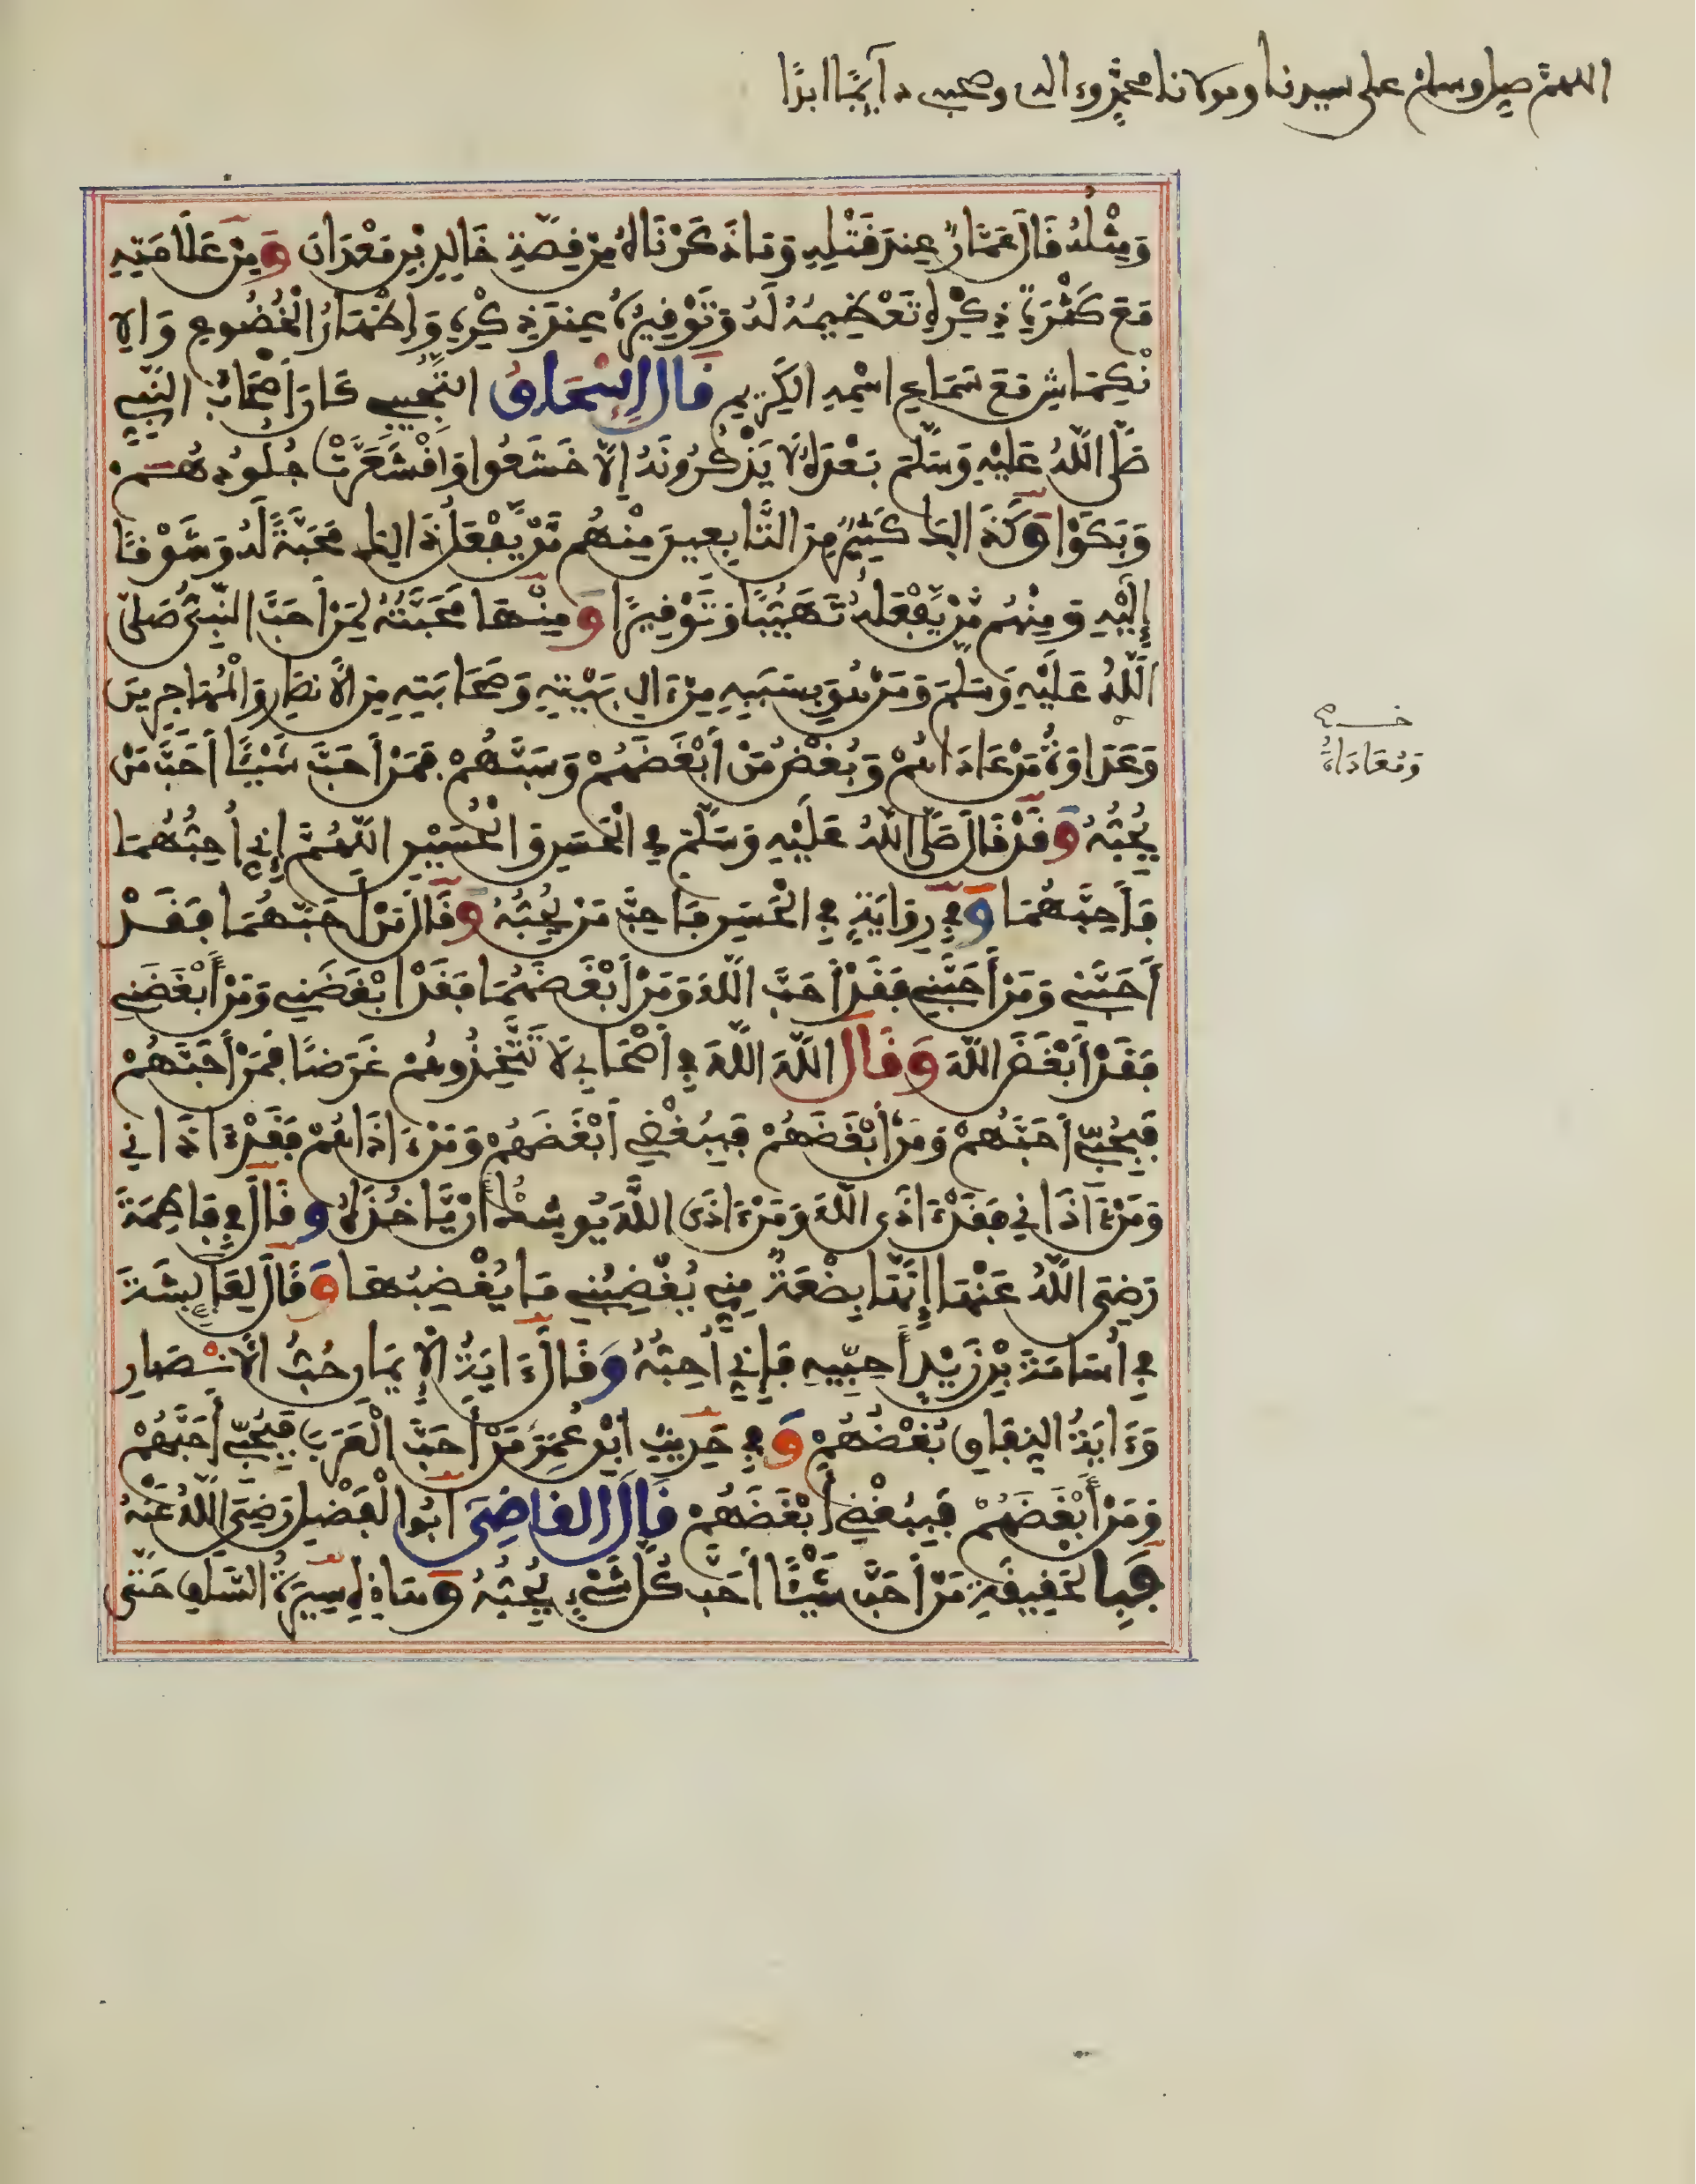 اللهم صل وسلم على سيدنا ومولانا محمد وءاله وصحبه دآيما ابدا
وَمِثْلُهُ قَالَ عَمَّارٌ عِنْدَ قَتْلِهِ وَمَا ذَكَرْنَاهُ مِنْ قِصَّةِ خَالِدِ بْنِ مَعْدَانَ وَمِنْ عَلَامَتِهِ
مَعَ كَثْرَةِ ذِكْرِهِ تَعْظِيمُهُ لَهُ وَتَوْقِيرُهُ عِنْدَ ذِكْرِهِ وَإِظْهَارُ الْخُضُوعِ وَالِا
نْكِمَاشِ مَعَ سَمَاعِ اسْمِهِ الْكَرِيمِ قَالَ إِسْحَاقُ التُّجِيبِي كَانَ أَصْحَابُ النَّبِيِّ
صَلَّى اللَّهُ عَلَيْهِ وَسَلَّمَ بَعْدَهُ لَا يَذْكُرُونَهُ إِلَّا خَشَعُوا وَاقْشَعَرَّتْ جُلُودُهُمْ
وَبَكَوْا وَكَذَالِكَ كَثِيرٌ مِنَ التَّابِعِينَ مِنْهُم مَّنْ يَّفْعَلُ ذَالِكَ مَحَبَّةً لَهُ وَشَوْقًا
إِلَيْهِ وَمِنْهُم مَّنْ يَّفْعَلُهُ تَهَيُّبًا وَتَوْقِيرًا وَمِنْهَا مَحَبَّتُهُ لِمَنْ أَحَبَّ النَّبِيُّ صَلَّى
اللَّهُ عَلَيْهِ وَسَلَّمَ وَمَنْ هُوَ بِسَبَبِهِ مِنْ ءَالِ بَيْتِهِ وَصَحَابَتِهِ مِنَ الْأَنصَارِ وَالْمُهَاجِرِينَ
وَعَدَاوَةُ مَنْ عَادَاهُمْ وَبُغْضُ مَنْ أَبْغَضَهُمْ وَسَبَّهُمْ فَمَنْ أَحَبَّ شَيْئًا أَحَبَّ مَنْ
خـ
وَمُعَادَاةُ
يُحِبُّهُ وَقَدْ قَالَ صَلَّى اللَّهُ عَلَيْهِ وَسَلَّمَ فِي الْحَسَنِ وَالْحُسَيْنِ اللَّهُمَّ إِنِّي أُحِبُّهُمَا
فَأَحِبَّهُمَا وَفِي رِوَايَةٍ فِي الْحَسَنِ فَأَحِبَّ مَنْ يُحِبُّهُ وَقَالَ مَنْ أَحَبَّهُمَا فَقَدْ
أَحَبَّنِي وَمَنْ أَحَبَّنِي فَقَدْ أَحَبَّ اللَّهَ وَمَنْ أَبْغَضَهُمَا فَقَدْ أَبْغَضَنِي وَمَنْ أَبْغَضَنِي
فَقَدْ أَبْغَضَ اللَّهَ وَقَالَ اللَّهَ اللَّهَ فِي أَصْحَابِي لَا تَتَّخِذُوهُمْ غَرَضًا فَمَنْ أَحَبَّهُمْ
فَبِحُبِّي أَحَبَّهُمْ وَمَنْ أَبْغَضَهُمْ فَبِبُغْضِي أَبْغَضَهُمْ وَمَنْ ءَاذَاهُمْ فَقَدْ ءَاذَانِي
وَمَنْ ءَاذَانِي فَقَدْ ءَاذَى اللَّهَ وَمَنْ ءَاذَى اللَّهَ يُوشِكُ أَنْ يَّاخُذَهُ وَقَالَ فِي فَاطِمَةَ
رَضِيَ اللَّهُ عَنْهَا إِنَّهَا بِضْعَةٌ مِنِّي يُغْضِبُنِي مَا يُغْضِبُهَا وَقَالَ لِعَائِشَةَ
فِي أُسَامَةَ بْنِ زَيْدٍ أَحِبِّيهِ فَإِنِّي أُحِبُّهُ وَقَالَ ءَايَةُ الْإِيمَانِ حُبُّ الْأَنْصَارِ
وَءَايَةُ النِّفَاقِ بُغْضُهُمْ وَفِي حَدِيثِ ابْنِ عُمَرَ مَنْ أَحَبَّ الْعَرَبَ فَبِحُبِّي أَحَبَّهُمْ
وَمَنْ أَبْغَضَهُمْ فَبِبُغْضِي أَبْغَضَهُمْ قَالَ الْقَاضِي أَبُو الْفَضْلِ رَضِيَ اللَّهُ عَنْهُ
فَبِالْحَقِيقَةِ مَنْ أَحَبَّ شَيْئًا أَحَبَّ كُلَّ شَيْءٍ يُحِبُّهُ وَهَاذِهِ سِيرَةُ السَّلَفِ حَتَّى